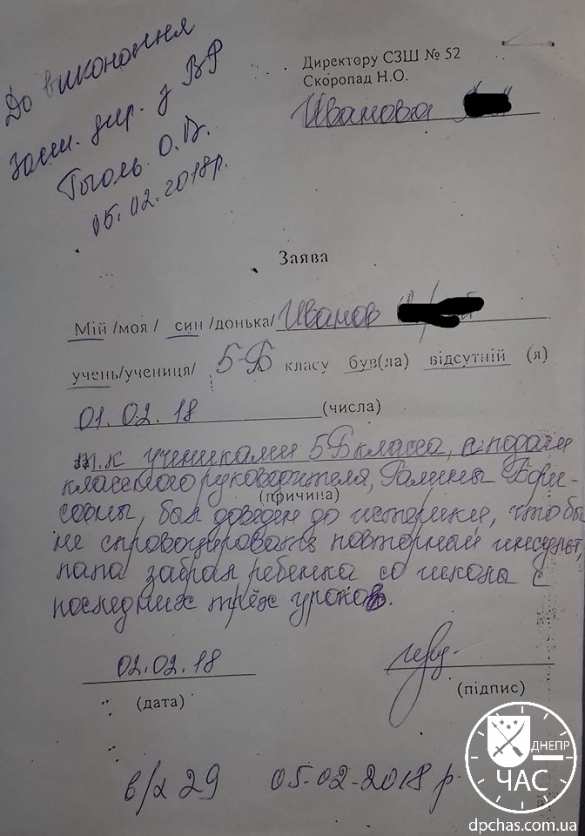 До виконання
заст. дир. з ВР
Гоголь О.В.
05.02.2018р.
Директору СЗШ № 52
Скоропад Н.О.
Иванова
Заява
Мій /моя / син /донька/ Иванов
учень/учениця/ 5-Б класу був(ла) відсутній (я)
01.02.18 (числа)
т.к учениками 5Б класса, с подачи
классного руководителя, Галины Бори-
(причина)
совны, был доведен до истерики, что бы
не спровоцировать повторный инсульт,
папа забрал ребенка со школы с
последних трёх уроков.
02.02.18
(дата)
(підпис)
в/х 29 05-02-2018 р.
ДНЕПР
ЧАС
dpchas.com.ua